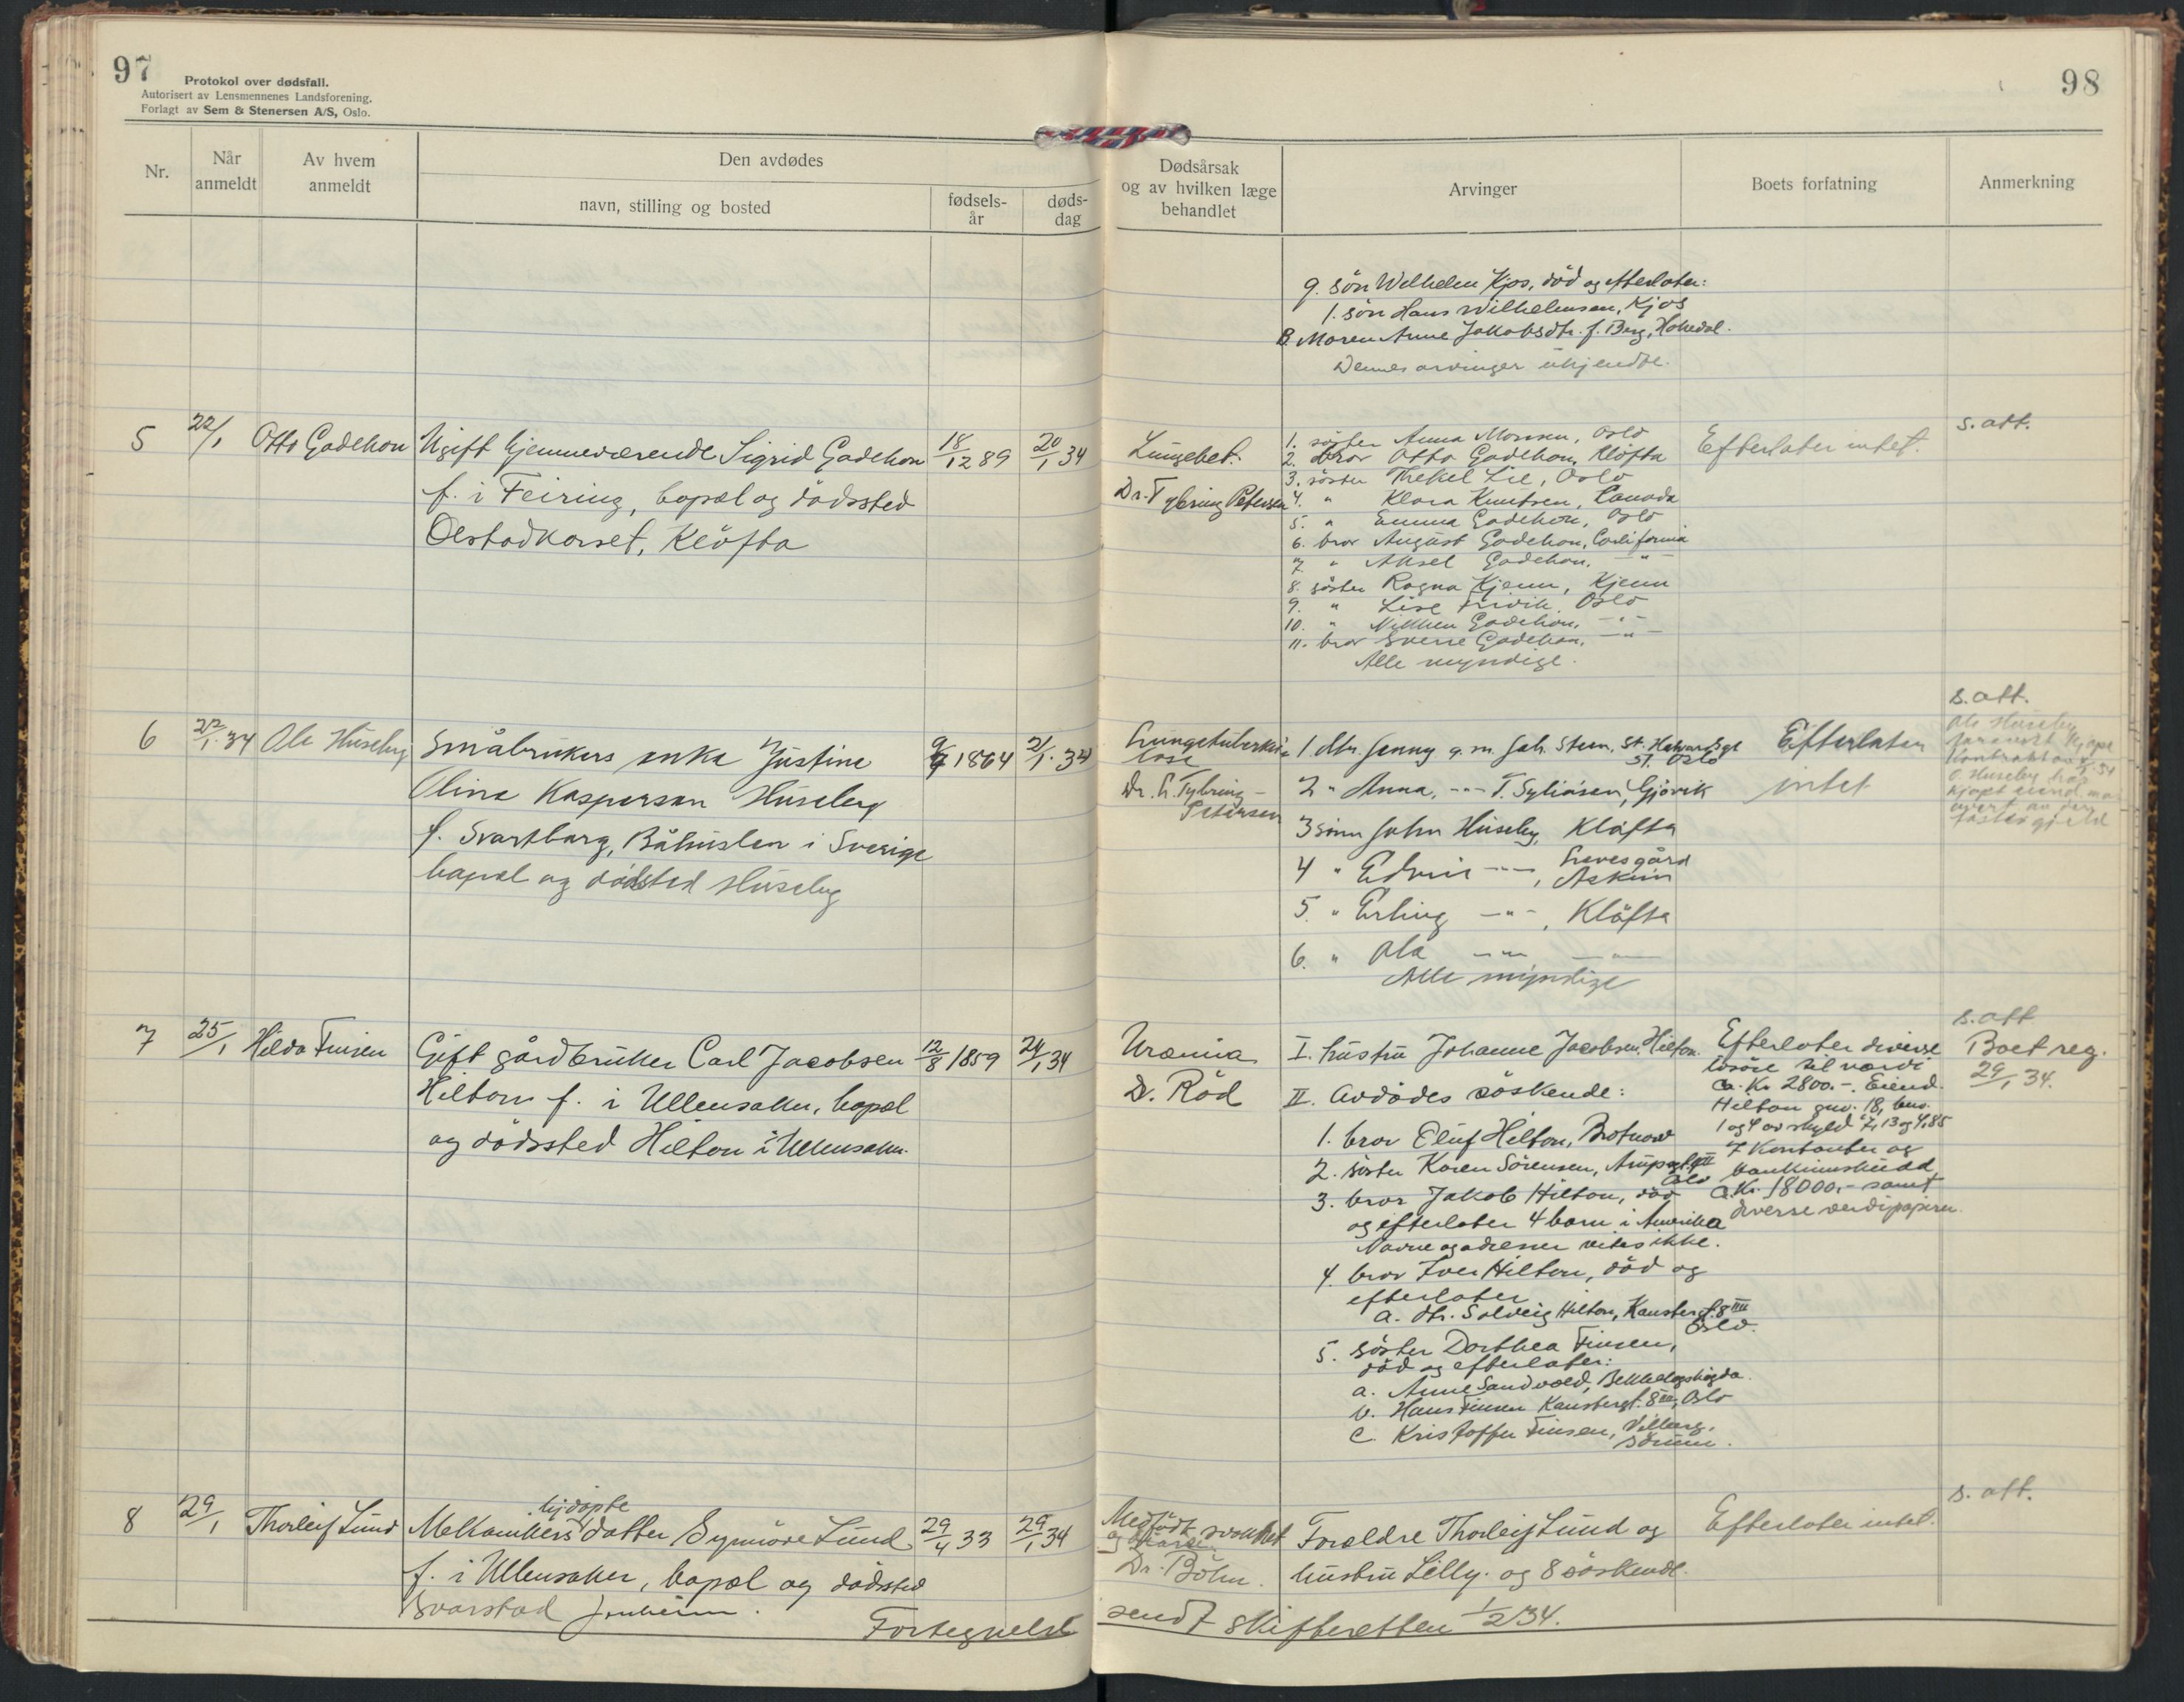 97
Protokol over dødsfall.
Autorisert av Lensmennenes Landsforening.
Forlagt av Sem & Stenersen A/S, Oslo.
98
Nr.
Når anmeldt
Av hvem anmeldt
Den avdødes
navn, stilling og bosted
fødselsår
dødsdag
Dødsårsak
og av hvilken læge
behandlet
Arvinger
Boets forfatning
Anmerkning
9. sön Wilhelm Kjos, död og efterlater:
1. sön Hans Wilhelmsen, Kjos
B. Maren Anne Jakobsdtr. f. Berg,
Dennes arvinger ukjendte.
5 22/1 Otto Gadehon Ugift hjemmeværende Sigrid Gadehon 18/12 89 20/1 34
f. i Feiring, bopæl og dödssted
Olstadkorset, Klöfta
Lungebet.
Dr. Tybring Petersen
1. söster Anna Monsen, Oslo
2. bror Otto Gadehon, Klöfta
3. söster Thekel Lie, Oslo
4. " Klara Knutsen, Canada
5. " Emma Gadehon, Oslo
6. bror August Gadehon, California
7. " Aksel Gadehon, — " —
8. söster Ragna Kjenn, Kjenn
9. " Lise Oslo
10. " Gadehon, — " —
11. bror Sverre Gadehon, — " —
Alle myndige.
Efterlater intet.
s. att.
6 22/1. 34 Ole Huseby Småbrukers enke Justine 9/9 1864 21/1. 34
Oline Kaspersen Huseby
f. Svartberg, Båhuslen i Sverige
bopæl og dödsted Huseby
Lungetuberkulose
Dr. Tybring-Petersen
1. dtr. Jenny g. m. Joh. Steen, St. Halvardsgt 51. Oslo
2 " Anna, — " — T. Syliasen, Gjövik
3 sönn John Huseby, Klöfta
4 " Edvin — " —, Askim
5. " Erling — " —, Klöfta
6. " Ole — " — — " —
Alle myndige
Efterlater
intet
s. att.
Ole Huseby
7 25/1 Hilda Finsen Gift gårdbruker Carl Jacobsen 12/8 1859 24/1 34
Hilton f. i Ullensaker, bopæl
og dödssted Hilton i Ullensaker.
Uræmia
Dr. Röd
I. hustru Johanne Jacobsen, Hilton.
II. Avdödes söskende:
1. bror Oluf Hilton,
2. söster Karen Sörensen, Oslo
3. bror Jakob Hilton, död
og efterlater 4 barn i Amerika
Navne og adresser vites ikke.
4. bror Iver Hilton, död og
efterlater
a. dtr. Solveig Hilton, Kausbergt. 8 III Oslo.
5. söster Dorthea Finsen,
död og efterlater:
a. Anne Sandvold, Bekkelagshögda.
b. Hans Finsen Kausbergt. 8 III, Oslo
c. Kristoffer Finsen, Vilberg,
Sörum.
Efterlater diverse
lösöre til værdi
ca. Kr. 2800.-. Eiend.
Hilton gnr. 18, bnr.
1 og 4 av skyld 7,13 og 4,85
Kontanter og
bankinnskudd
ca. Kr. 18000,- samt
diverse verdipapirer.
s. att
Boet reg.
29/1 34.
8 29/1 Thorleif Lund Mekanikers hjdöpte datter Synnöve Lund 29/4 33 29/1 34
f. i Ullensaker, bopæl og dödssted
Svarstad Jessheim.
Medfödt svakhet
og
Dr. Böhn.
Foreldre Thorleif Lund og
hustru Lilly. og 8 söskende.
Efterlater intet.
s. att.
Fortegnelse sendt skifteretten 1/2 34.